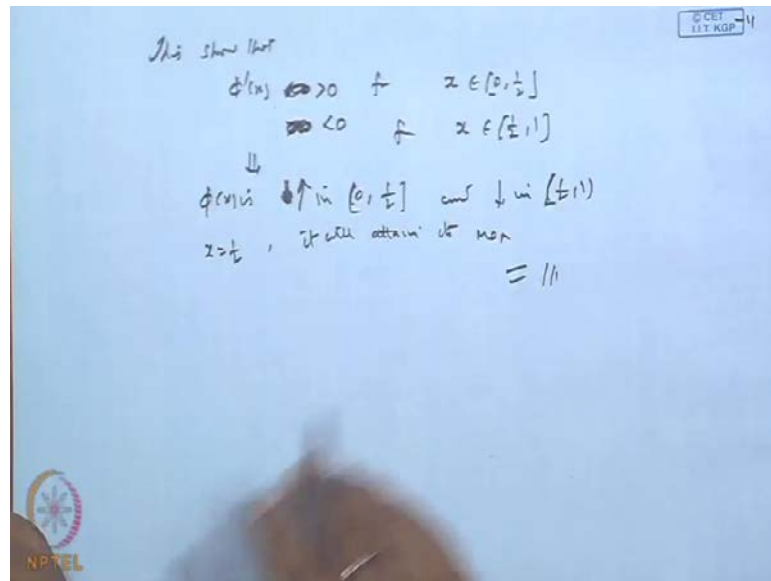 © CET
I.I.T. KGP
This show that
ϕ'(x) >0 f x ∈ [0, 1/2]
<0 f x ∈ [1/2, 1]
⇓
ϕ(x) is ↑ in [0, 1/2] and ↓ in [1/2, 1)
x = 1/2, it will attain its max
= 
NPTEL